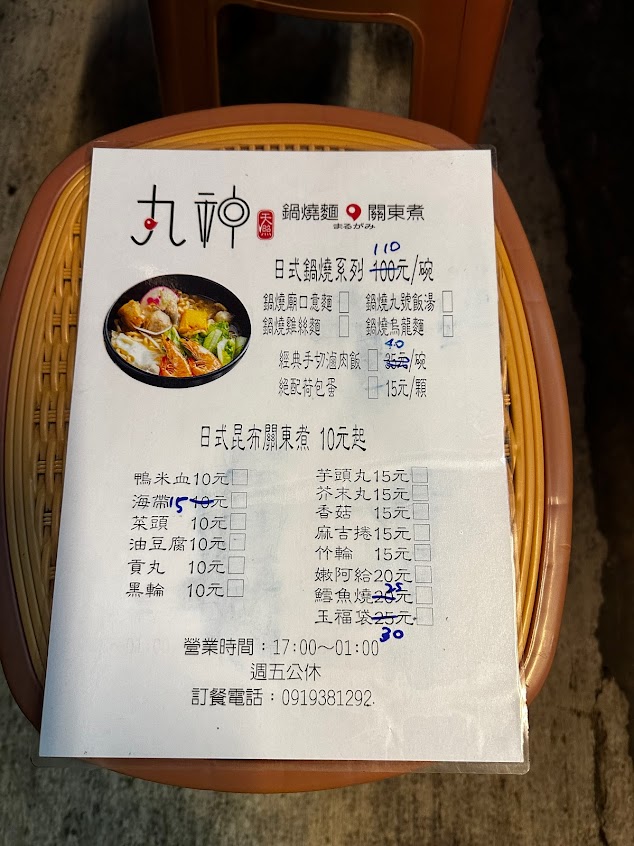 丸神 天照 鍋燒麵 關東煮
まるがみ
110
日式鍋燒系列 100元/碗
鍋燒廟口意麵 鍋燒九號飯湯
鍋燒雞絲麵 鍋燒烏龍麵
40
經典手切滷肉飯 35元/碗
絕配荷包蛋 15元/顆
日式昆布關東煮 10元起
鴨米血10元 芋頭丸15元
海帶15 10元 芥末丸15元
菜頭 10元 香菇 15元
油豆腐10元 麻吉捲15元
貢丸 10元 竹輪 15元
黑輪 10元 嫩阿給20元
25
鱈魚燒20元
玉福袋25元
30
營業時間:17:00~01:00
週五公休
訂餐電話:0919381292